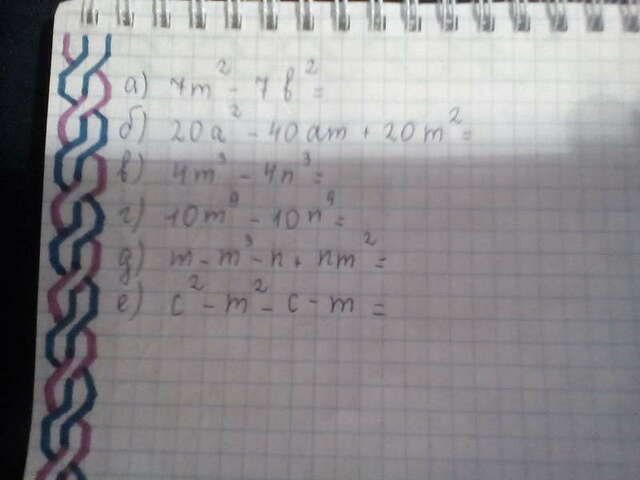 а) 7m² - 7b² =
б) 20a² - 40am + 20m² =
в) 4m³ - 4n³ =
г) 10m⁹ - 10n⁹ =
д) m - m³ - n + nm² =
е) c² - m² - c - m =